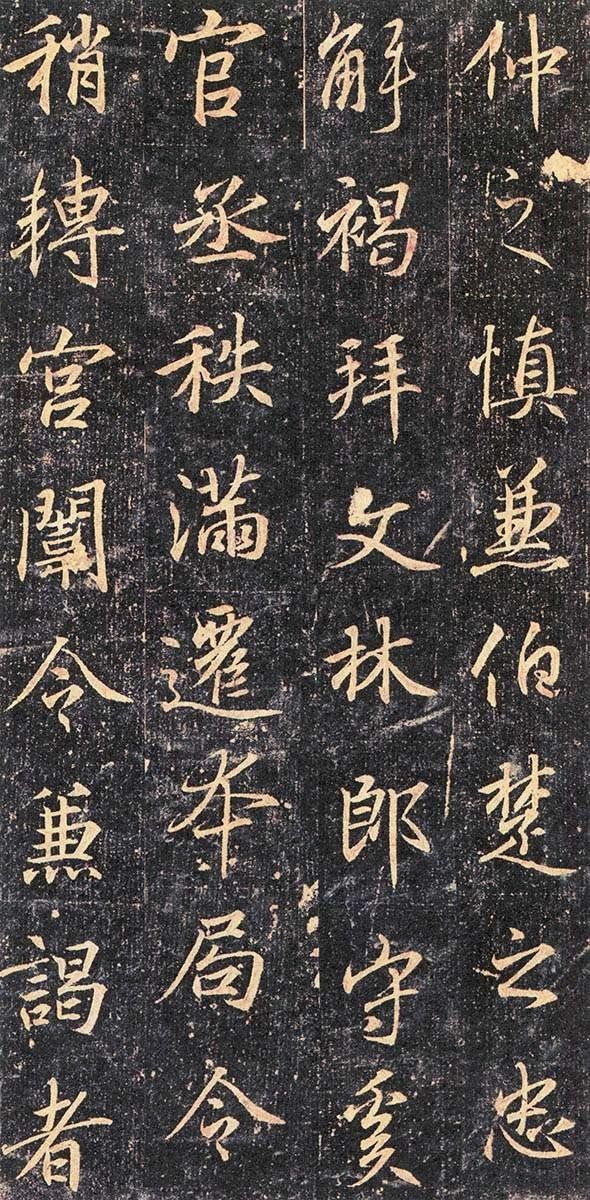 仲之慎兼伯楚之忠
解褐拜文林郎守奚
官丞秩滿遷本局令
稍轉宮闈令兼謁者